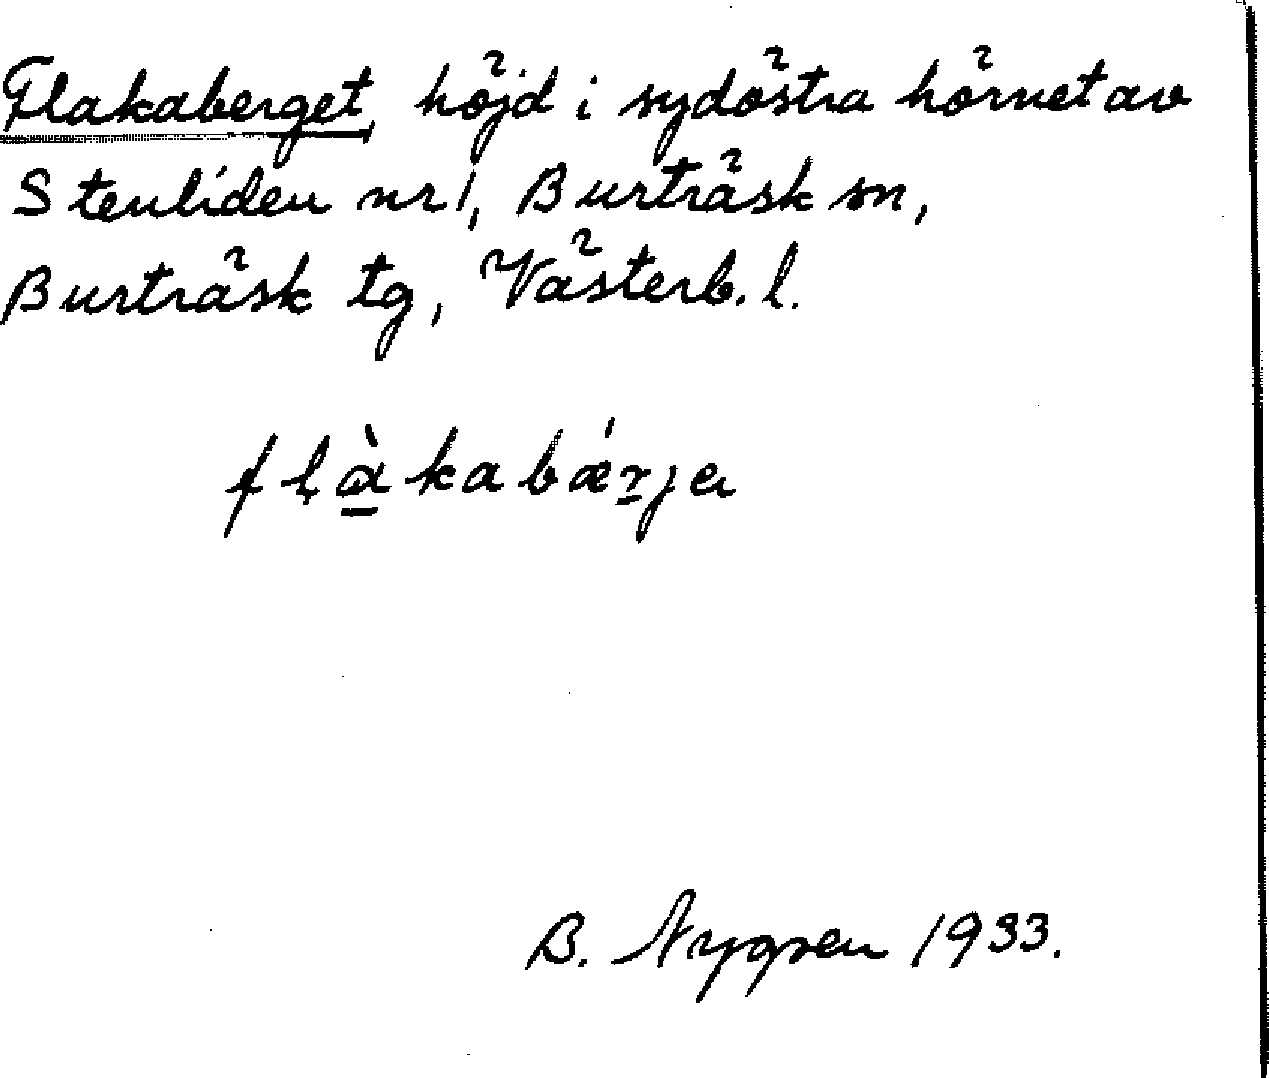 Flakaberget, höjd i sydöstra hörnet av
Stenliden nr 1, Burträsk sn,
Burträsk tg, Västerb. l.
flàkabǽrja
B. Nygren 1933.